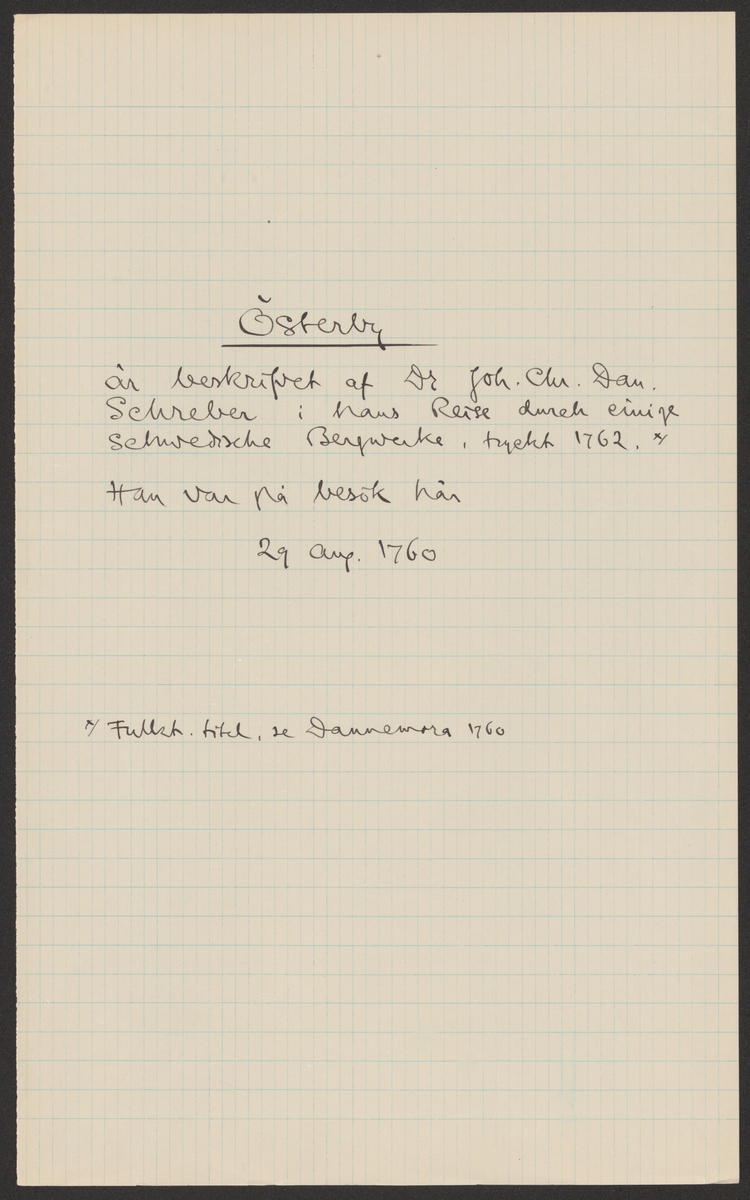 Österby
är beskrifvet af Dr Joh. Chr. Dan.
Schreber i hans Reise durch einige
Schwedische Bergwerke, tryckt 1762. x/
Han var på besök här
29 Aug. 1760
x/ Fullst. titel, se Dannemora 1760